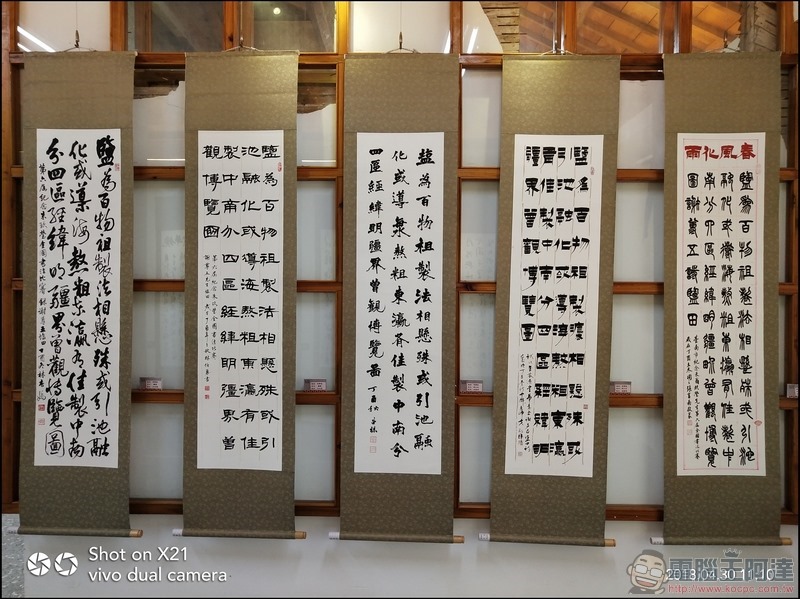 春風化雨
鹽為百物祖製法相懸殊或引池
融化或導海熬粗東瀛有佳製中
南分四區經緯明疆界曾觀博覽
圖
鹽為百物祖製法相懸殊或
引池融化或導海熬粗東瀛
有佳製中南分四區經緯明
疆界曾觀博覽圖
鹽為百物祖製法相懸殊或引池融
化或導海熬粗東瀛有佳製中南分
四區經緯明疆界曾觀博覽圖 丁酉秋
鹽為百物祖製法相懸殊或引
池融化或導海熬粗東瀛有佳
製中南分四區經緯明疆界曾
觀博覽圖
鹽為百物祖製法相懸殊或引池融
化或導海熬粗東瀛有佳製中南
分四區經緯明疆界曾觀博覽圖
Shot on X21
vivo dual camera
2018.04.30 11:10
電腦王阿達
http://www.kocpc.com.tw